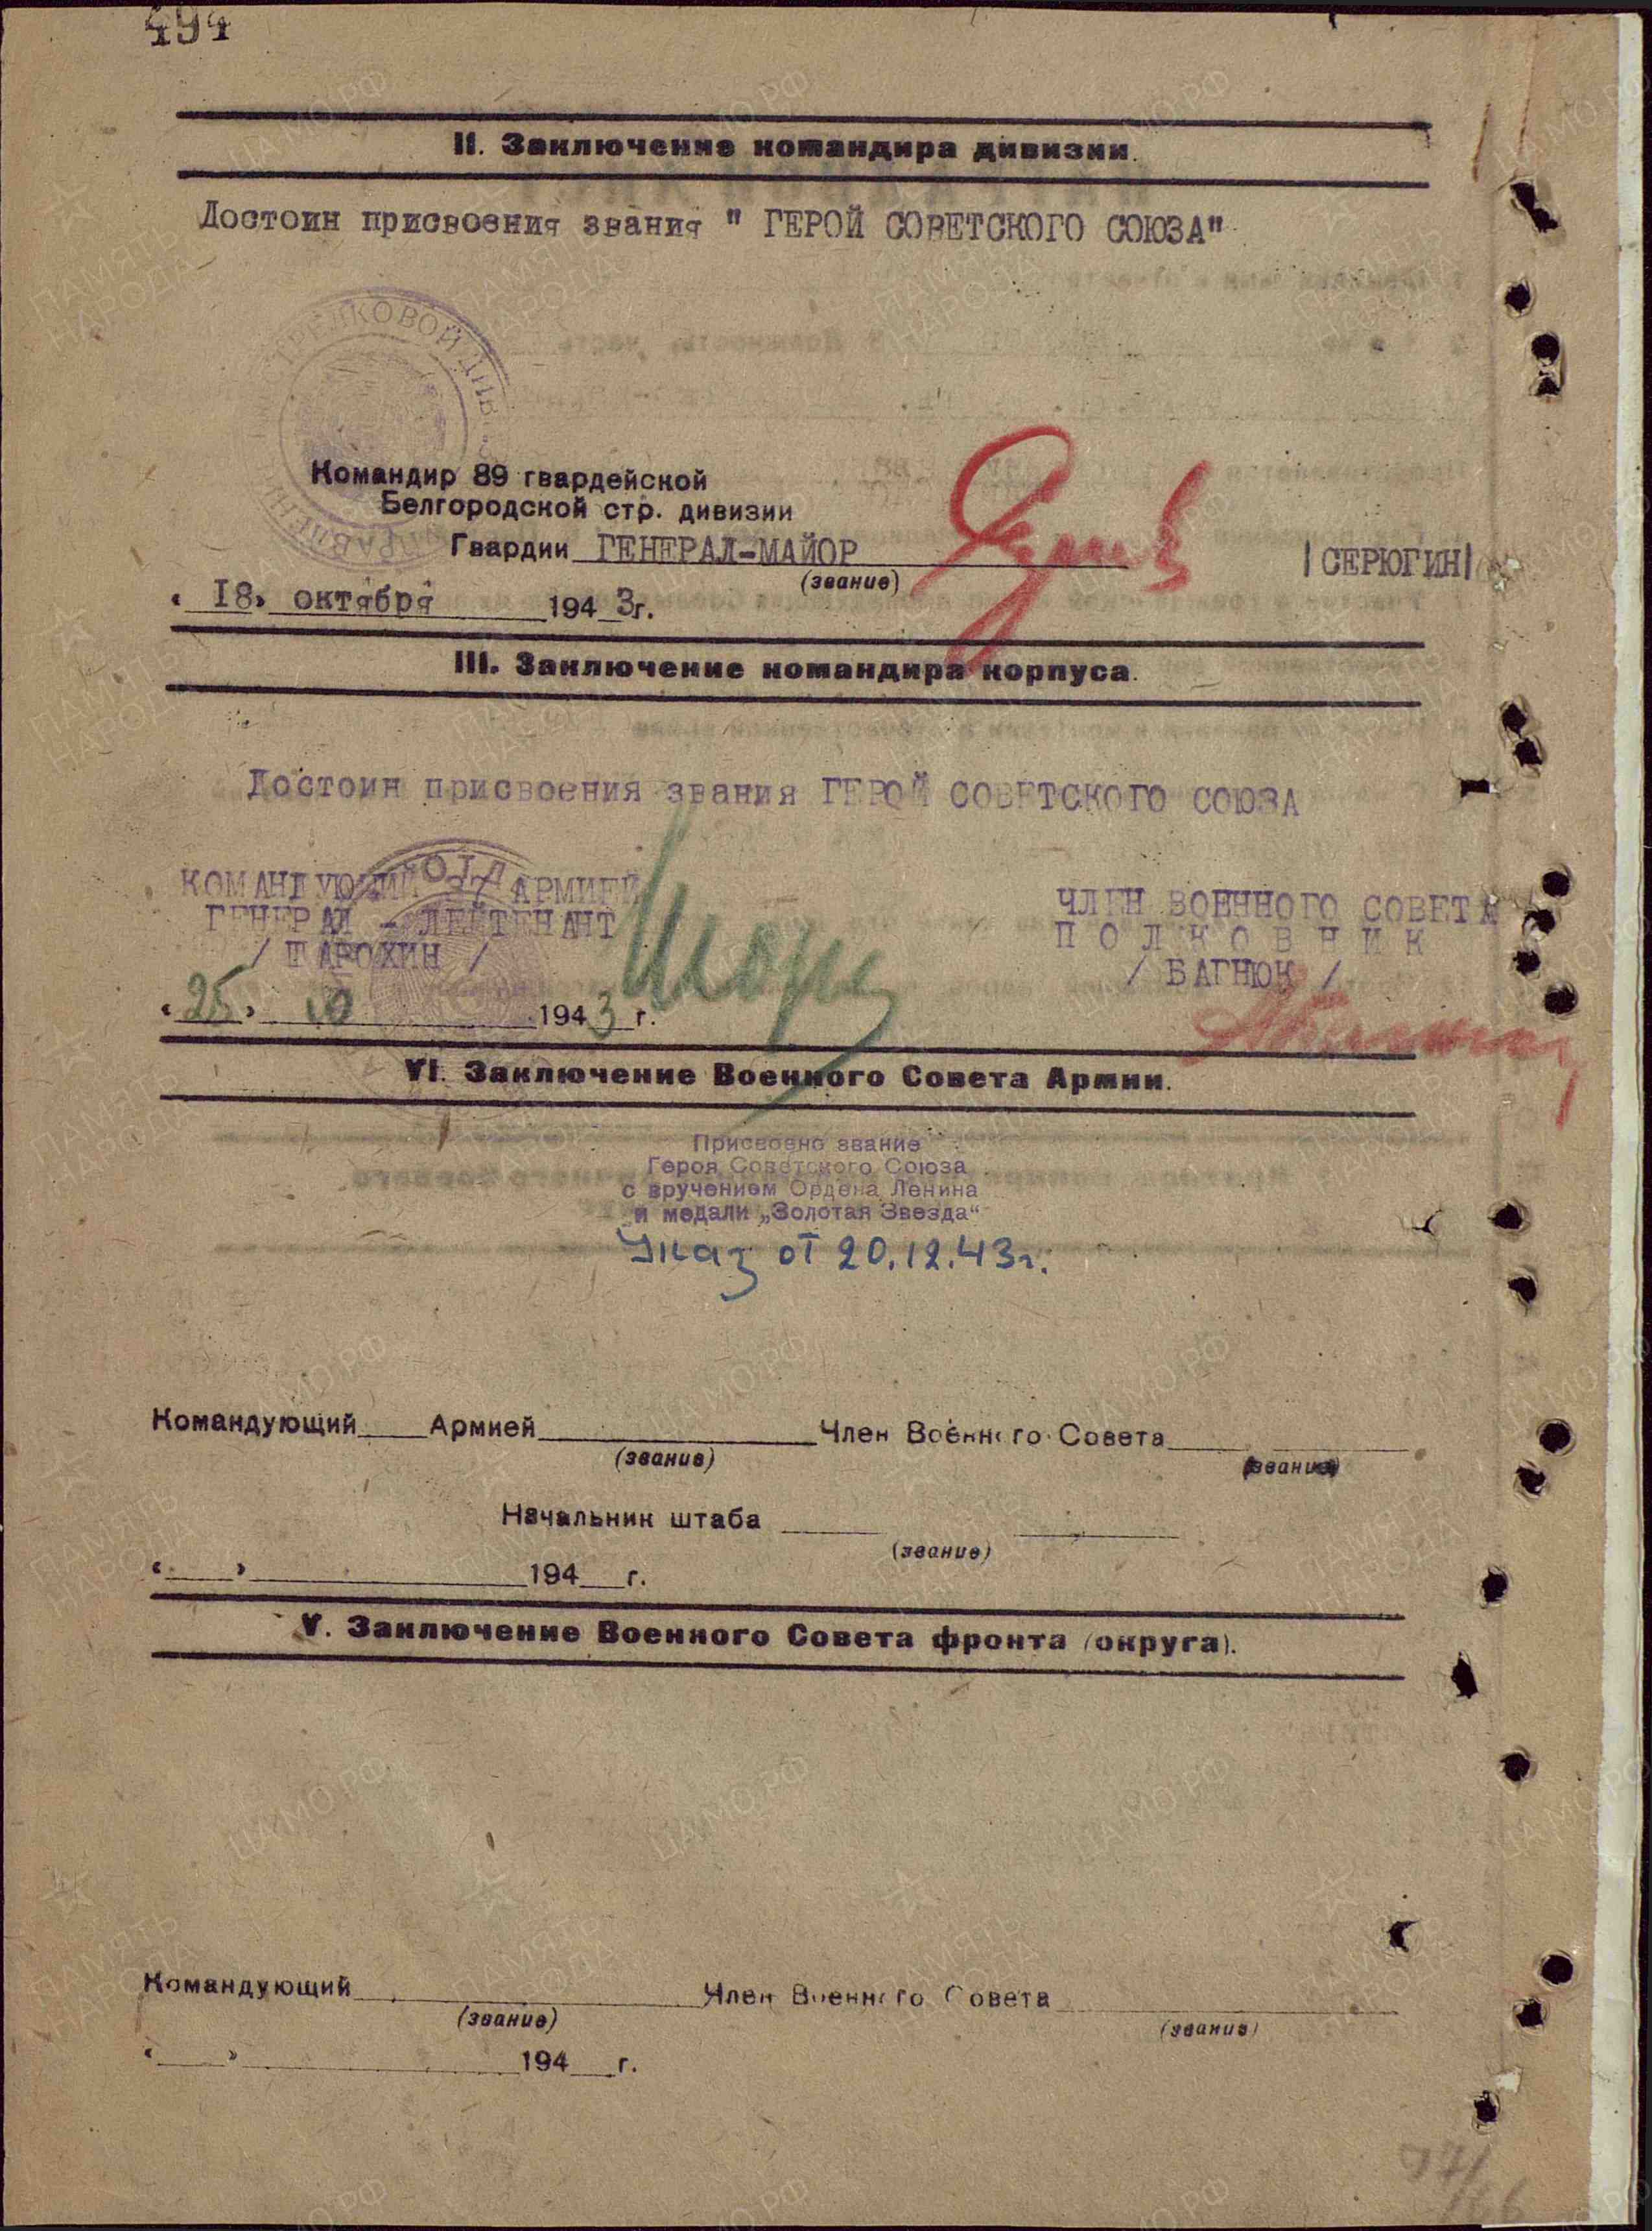 494
II. Заключение командира дивизии.
Достоин присвоения звания " ГЕРОЙ СОВЕТСКОГО СОЮЗА"
СТРЕЛКОВОЙ ДИВ
Командир 89 гвардейской
Белгородской стр. дивизии
Гвардии ГЕНЕРАЛ-МАЙОР
(звание)
|СЕРЮГИН|
« 18» октября 1943г.
III. Заключение командира корпуса.
Достоин присвоения звания ГЕРОЙ СОВЕТСКОГО СОЮЗА
КОМАНДУЮЩИЙ 37 АРМИЕЙ
ГЕНЕРАЛ - ЛЕЙТЕНАНТ
/ ШАРОХИН /
ЧЛЕН ВОЕННОГО СОВЕТА
ПОЛКОВНИК
/ БАГНЮК /
«25» 10 1943 г.
VI. Заключение Военного Совета Армии.
Присвоено звание
Героя Советского Союза
с вручением Ордена Ленина
и медали „Золотая Звезда“
Указ от 20.12.43г.
Командующий Армией Член Военного Совета
(звание) (звание)
Начальник штаба
(звание)
« » 194 г.
V. Заключение Военного Совета фронта (округа).
Командующий Член Военного Совета
(звание) (звание)
« » 194 г.
ПАМЯТЬ НАРОДА
ЦАМО.РФ